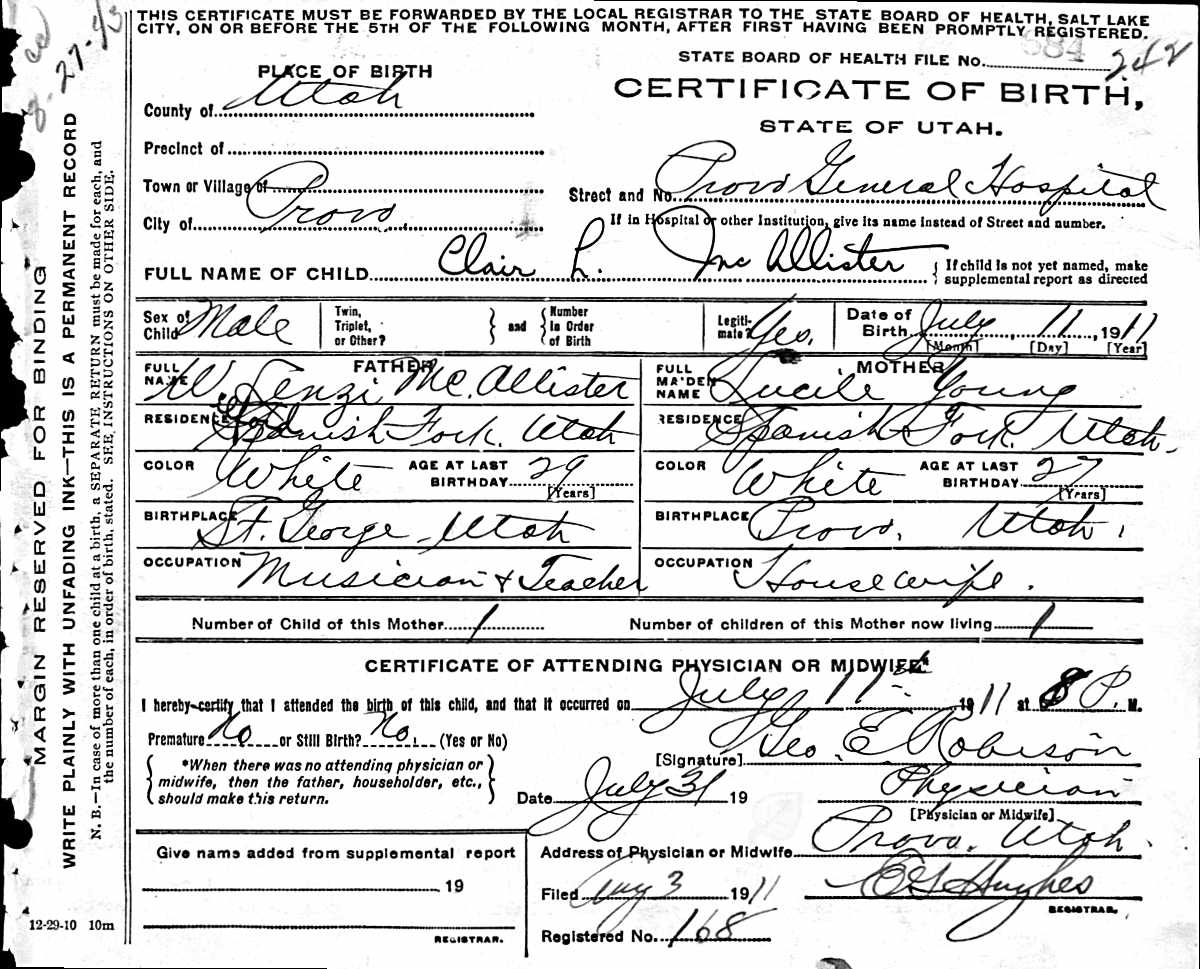 THIS CERTIFICATE MUST BE FORWARDED BY THE LOCAL REGISTRAR TO THE STATE BOARD OF HEALTH, SALT LAKE
CITY, ON OR BEFORE THE 5TH OF THE FOLLOWING MONTH, AFTER FIRST HAVING BEEN PROMPTLY REGISTERED.
STATE BOARD OF HEALTH FILE No. 242
PLACE OF BIRTH
CERTIFICATE OF BIRTH,
STATE OF UTAH.
County of Utah
Precinct of
Town or Village of
Street and No. Provo General Hospital
City of Provo.
If in Hospital or other Institution, give its name instead of Street and number.
FULL NAME OF CHILD Clair L. McAllister
If child is not yet named, make
supplemental report as directed
Sex of Child Male
Twin, Triplet, or Other? and Number In Order of Birth
Legitimate? Yes.
Date of Birth July, 11, 1911
[Month] [Day] [Year]
FATHER
FULL NAME W. Lenzi McAllister
MOTHER
FULL MAIDEN NAME Lucile Young
RESIDENCE Spanish Fork. Utah
RESIDENCE Spanish Fork. Utah.
COLOR White AGE AT LAST BIRTHDAY 29 [Years]
COLOR White AGE AT LAST BIRTHDAY 27 [Years]
BIRTHPLACE St. George, Utah
BIRTHPLACE Provo, Utah.
OCCUPATION Musician & Teacher
OCCUPATION Housewife.
Number of Child of this Mother 1 Number of children of this Mother now living 1
CERTIFICATE OF ATTENDING PHYSICIAN OR MIDWIFE*
I hereby certify that I attended the birth of this child, and that it occurred on July 11th 1911 at 8 P. M.
Premature No or Still Birth? No. (Yes or No)
[Signature] Geo. E. Robison
*When there was no attending physician or
midwife, then the father, householder, etc.,
should make this return.
Date July 31 19
Physician
[Physician or Midwife]
Give name added from supplemental report
19
REGISTRAR.
Address of Physician or Midwife Provo. Utah.
Filed Aug 3 1911 Hughes
REGISTRAR.
Registered No. 168
12-29-10 10m
MARGIN RESERVED FOR BINDING
WRITE PLAINLY WITH UNFADING INK—THIS IS A PERMANENT RECORD
N. B.—In case of more than one child at a birth, a SEPARATE RETURN must be made for each, and
the number of each, in order of birth, stated. SEE INSTRUCTIONS ON OTHER SIDE.